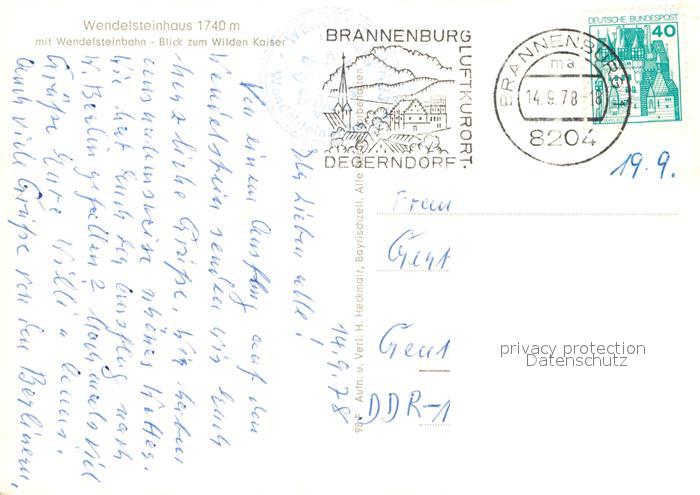 Wendelsteinhaus 1740 m
mit Wendelsteinbahn - Blick zum Wilden Kaiser
BRANNENBURG
LUFTKURORT.
DEGERNDORF.
BRANNENBURG
ma
14.9.78-18
8204
DEUTSCHE BUNDESPOST
40
19.9.
14.9.78.
Ihr Lieben alle!
Von einem Ausflug auf den
Wendelstein senden wir Euch
herzliche Grüße. Wir haben
ausnahmsweise schönes Wetter.
Wie hat Euch der Ausflug nach
Berlin gefallen? Nochmals viel
Grüße Eure Willi u.
Auch viele Grüße von den Berlinern.
98 F Aufn. u. Verl. H. Heckmair, Bayrischzell. Alle
Gent
Gent
DDR-1
privacy protection
Datenschutz